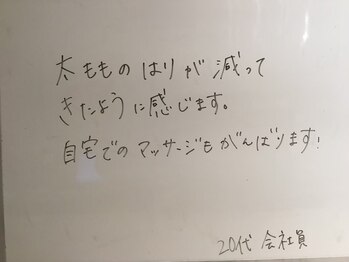 太もものはりが減って
きたように感じます。
自宅でのマッサージもがんばります!
20代 会社員